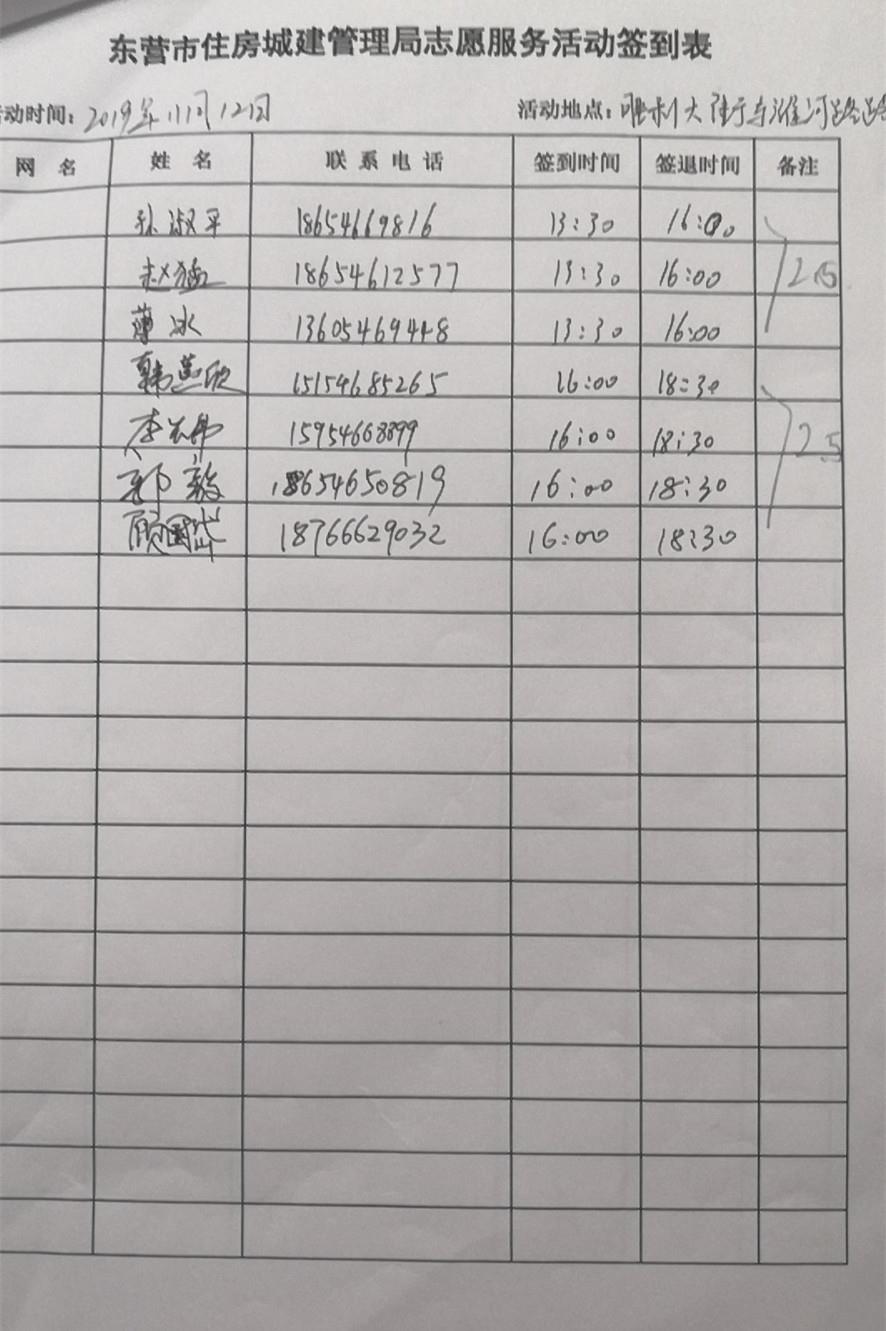 东营市住房城建管理局志愿服务活动签到表
动时间：2019年11月12日 活动地点：胜利大街与淮河路路
网 名 姓 名 联系电话 签到时间 签退时间 备注
孙淑平 18654669816 13:30 16:00
赵猛 18654612577 13:30 16:00 2.5
薄冰 13605469448 13:30 16:00
韩燕欣 15154685265 16:00 18:30
李 伟 15954668899 16:00 18:30 2.5
郭毅 18654650819 16:00 18:30
顾国岱 18766629032 16:00 18:30